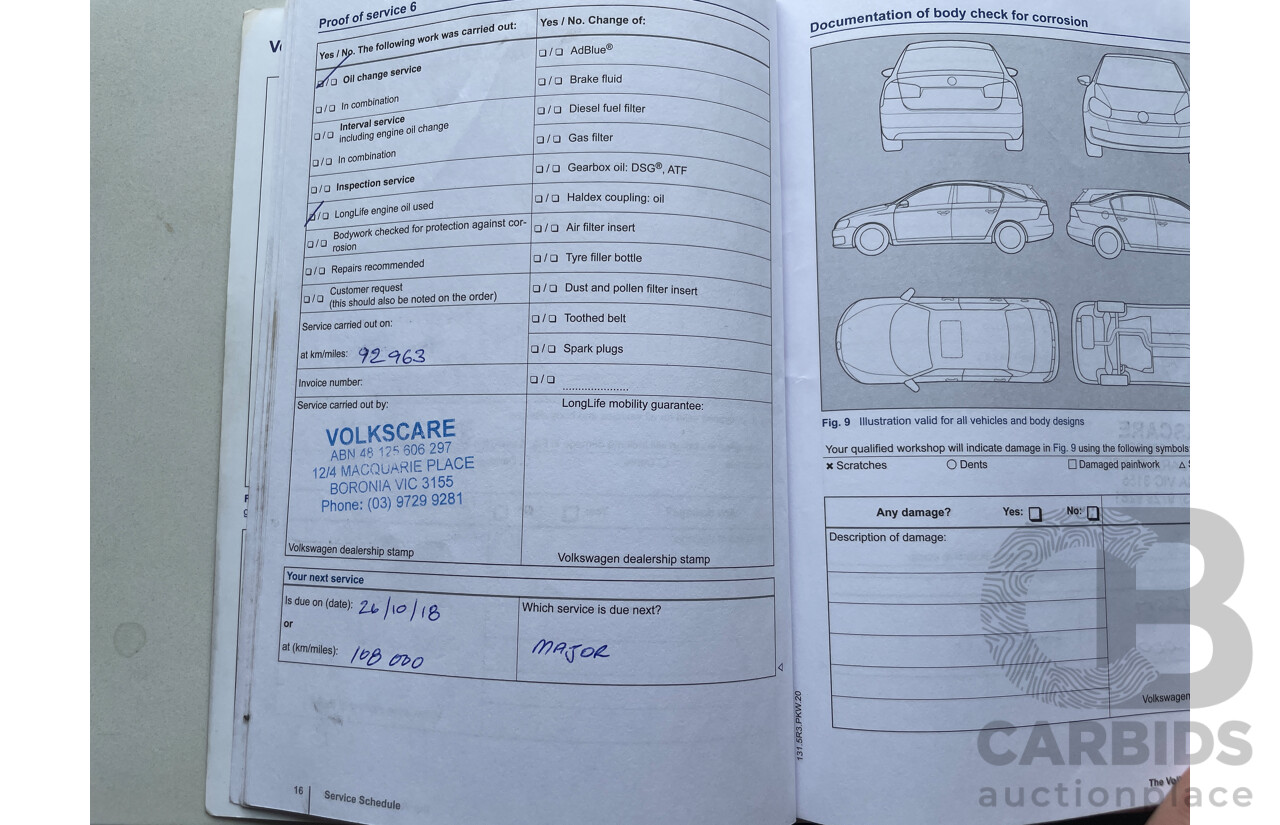 Proof of service 6
Yes / No. The following work was carried out:
☐/☐ Oil change service
☐/☐ In combination
☐/☐ Interval service
including engine oil change
☐/☐ In combination
☐/☐ Inspection service
☐/☐ LongLife engine oil used
☐/☐ Bodywork checked for protection against cor-
rosion
☐/☐ Repairs recommended
☐/☐ Customer request
(this should also be noted on the order)
Service carried out on:
at km/miles: 92 963
Invoice number:
Service carried out by:
VOLKSCARE
ABN 48 125 606 297
12/4 MACQUARIE PLACE
BORONIA VIC 3155
Phone: (03) 9729 9281
Volkswagen dealership stamp
Yes / No. Change of:
☐/☐ AdBlue®
☐/☐ Brake fluid
☐/☐ Diesel fuel filter
☐/☐ Gas filter
☐/☐ Gearbox oil: DSG®, ATF
☐/☐ Haldex coupling: oil
☐/☐ Air filter insert
☐/☐ Tyre filler bottle
☐/☐ Dust and pollen filter insert
☐/☐ Toothed belt
☐/☐ Spark plugs
☐/☐ .....................
LongLife mobility guarantee:
Volkswagen dealership stamp
Your next service
Is due on (date): 26/10/18
or
at (km/miles): 108 000
Which service is due next?
MAJOR
16 Service Schedule
131.5R3.PKW.20
Documentation of body check for corrosion
Fig. 9 Illustration valid for all vehicles and body designs
Your qualified workshop will indicate damage in Fig. 9 using the following symbols
× Scratches ○ Dents ☐ Damaged paintwork △
Any damage? Yes: ☐ No: ☐
Description of damage:
Volkswagen
The
CB
CARBIDS
auctionplace